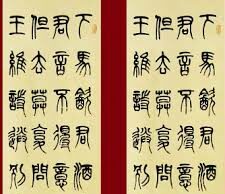 下馬飲君酒
君言不得意
但去莫復問
王維詩送別
下馬飲君酒
君言不得意
但去莫復問
王維詩送別